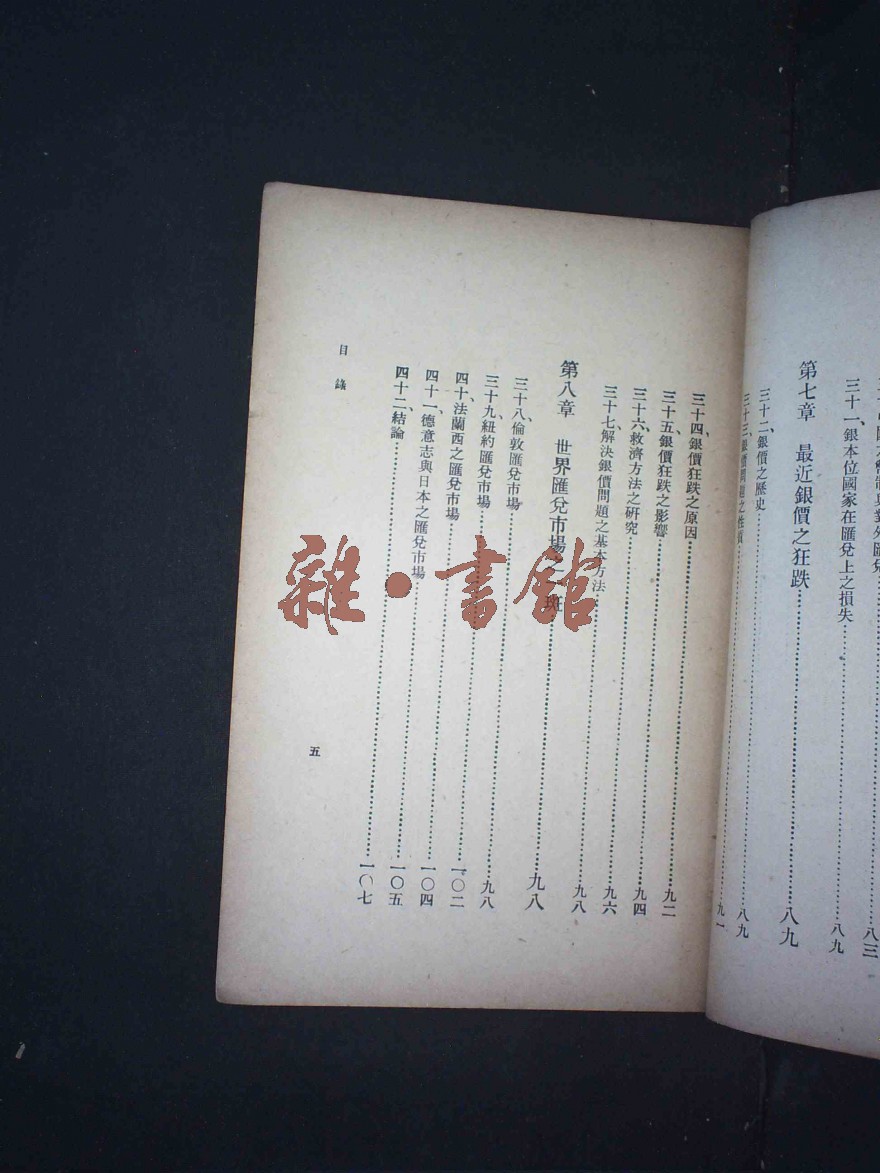 三十一、銀本位國家在匯兌上之損失……八九
第七章　最近銀價之狂跌……八九
三十二、銀價之歷史……八九
三十三、銀價問題之性質……九一
三十四、銀價狂跌之原因……九二
三十五、銀價狂跌之影響……九四
三十六、救濟方法之研究……九六
三十七、解決銀價問題之基本方法……九八
第八章　世界匯兌市場之一斑……九八
三十八、倫敦匯兌市場……九八
三十九、紐約匯兌市場……一〇二
四十、法蘭西之匯兌市場……一〇四
四十一、德意志與日本之匯兌市場……一〇五
四十二、結論……一〇七
目錄
五
雜·書館